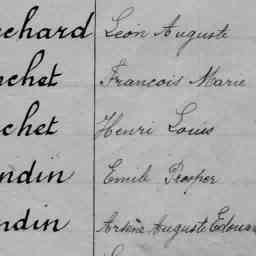 chard Léon Auguste
chet François Marie
chet Henri Louis
ndin Emile Prosper
ndin Arsène Auguste Edoua